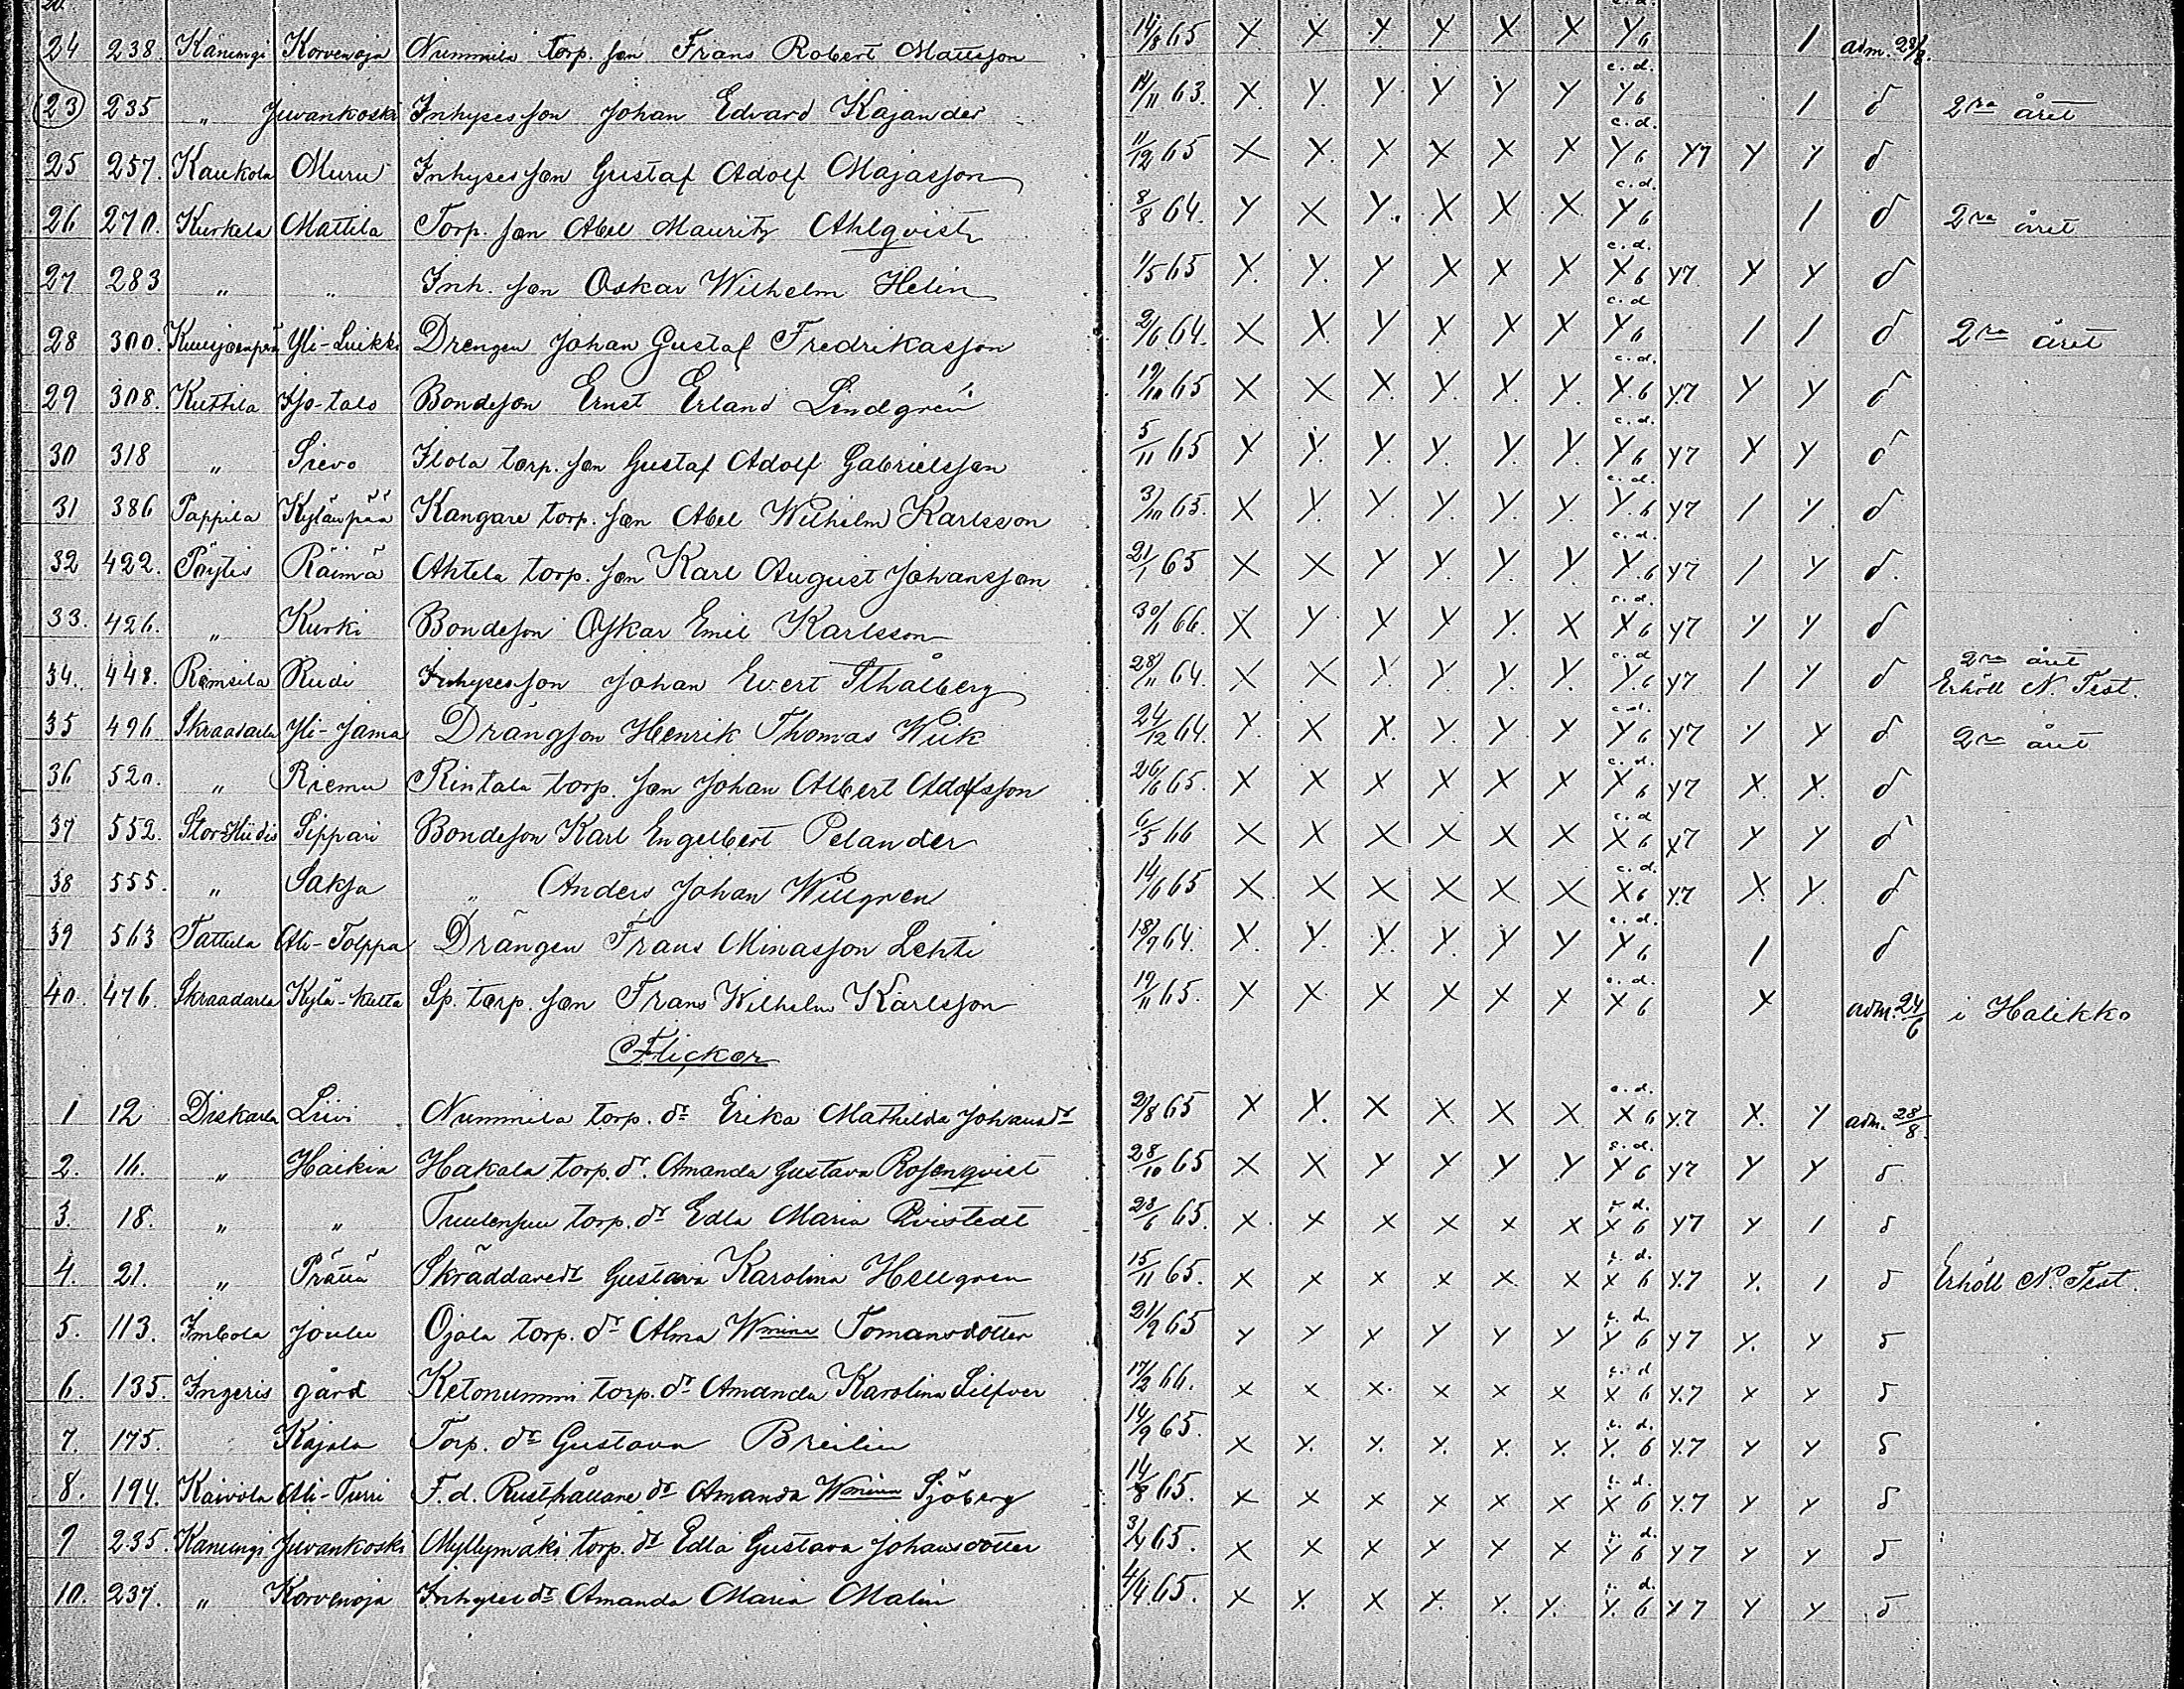 24 238. Kanungi Korvenoja Nummila torp. son Frans Robert Mattsson 14/8 65 X X Y Y X X Y6 1 adm. 28/8.
23 235 „ Juvankoski Inhysesson Johan Edvard Kajander 14/11 63. X. Y. Y Y Y Y c.d. Y6 1 d 2ra året
25 257. Kaukola Muru Inhysesson Gustaf Adolf Majasson 11/12 65 X X. X X X X c.d. Y6 Y7 Y Y d
26 270. Kurkela Mattila Torp. son Abel Mauritz Ahlqvist 8/8 64. Y X Y. X X X c.d. Y6 1 d 2ra året
27 283 „ „ Inh. son Oskar Wilhelm Helin 1/5 65 Y. Y. Y X X X c.d. X6 Y7. Y Y d
28 300. Yli-Luikki Drengen Johan Gustaf Fredrikasson 2/6 64. X X Y X X X c.d Y6 1 1 d 2ra året
29 308. Kuttila Iso-talo Bondeson Ernst Erland Lindgren 19/10 65 X X X. Y. Y. Y. c.d. X.6 Y.7 Y Y d
30 318 „ Sievo Ilola torp. son Gustaf Adolf Gabrielsson 5/11 65 X Y. Y. Y. Y. Y. c.d. Y6 Y7 X Y d
31 386 Pappila Kylänpää Kangare torp. son Abel Wilhelm Karlsson 3/10 65. X Y. Y. Y. Y. Y. c.d. Y.6 Y7 1 Y d
32 422. Pöytis Räimä Ahtela torp. son Karl August Johansson 21/1 65 X X Y Y. Y. Y c.d. Y.6 Y7 1 Y d.
33. 426. „ Kurki Bondeson Oskar Emil Karlsson 30/1 66. X Y Y Y Y. X c.d. X6 Y7 Y Y d
34. 448. Romsila Rudi Inhysesson Johan Evert Sthålberg 28/11 64. X X Y Y. Y. Y. c.d Y.6 Y7 1 Y d 2ra året Erhöll N. Test.
35 496 Skraadarla Yli-Jama Drängson Henrik Thomas Wiik 24/12 64. Y. X X. Y. Y. X c.d. Y6 Y7 Y Y d 2ra året
36 520. „ Riemu Rintala torp. son Johan Albert Adolfsson 26/6 65. X X X X X X c.d. X6 Y7 X. X. d
37 552. Stor-Hiidis Sippari Bondeson Karl Engelbert Pelander 6/5 66 X X X X X X c.d X6 Y7 Y Y d
38 555. „ Saksa „ Anders Johan Willgren 14/6 65 X X X X X X c.d. X6 Y.7 X. Y. d
39 563 Tattula Ali-Tolppa Drängen Frans Minasson Lehti 18/9 64. X. Y. Y. Y. Y Y c.d. Y6 1 d
40. 476. Skraadarla Kylä-Katta Sp. torp. son Frans Wilhelm Karlsson 19/11 65. X X X X X X c.d. X6 X adm. 24/6 i Halikko
Flickor
1 12 Diskarla Liivi Nummila torp. dr Erika Mathilda Johansdr 2/8 65 X X. X X. X X c.d. X6 Y.7 X. Y adm. 28/8.
2. 16. „ Haikia Hakala torp. dr. Amanda Gustava Rosenqvist 28/10 65 X X Y Y Y Y c.d. Y6 Y7 Y Y d
3. 18. „ „ Tuulensuu torp. dr Edla Maria Qvistedt 28/6 65. X X X X X X c.d. X6 Y7 Y 1 d
4. 21. „ Prättä Skräddaredr Gustava Karolina Hellgren 15/11 65. X X X X. X. X c.d. X6 Y.7 Y. 1 d Erhöll N. Test.
5. 113. Imbola Joulu Ojala torp. dr Alma Wmina Tomansdotter 21/9 65 Y Y X Y Y Y c.d. Y6 Y7 Y. Y d
6. 135. Ingeris gård Ketonummi torp. dr Amanda Karolina Silfver 17/2 66. X X X. X X X c.d X6 Y.7 Y Y d
7. 175. Kajala Torp. dr Gustava Breilin 14/9 65. X Y. X. X. X. X. c.d. Y.6 Y.7 Y Y d
8. 194. Kaivola Ali-Turri F. d. Rusthållare dr Amanda Wmina Sjöberg 14/8 65. X X X X X X c.d. X6 Y.7 Y Y d
9 235. Kanungi Juvankoski Myllymäki torp. dr Edla Gustava Johansdotter 3/4 65. X X X X X X c.d. Y6 Y7 Y Y d
10. 237. „ Korvenoja Inhyses dr Amanda Maria Malin 4/4 65. X X. X X. X. X. c.d. Y.6 X7 Y Y d